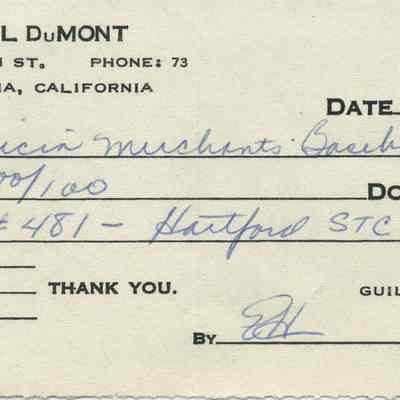 L DuMONT
ST. PHONE: 73
IA, CALIFORNIA
DATE
icia Merchants Baseb
00/100 Do
# 481 - Hartford STC
THANK YOU. GUIL
BY EH